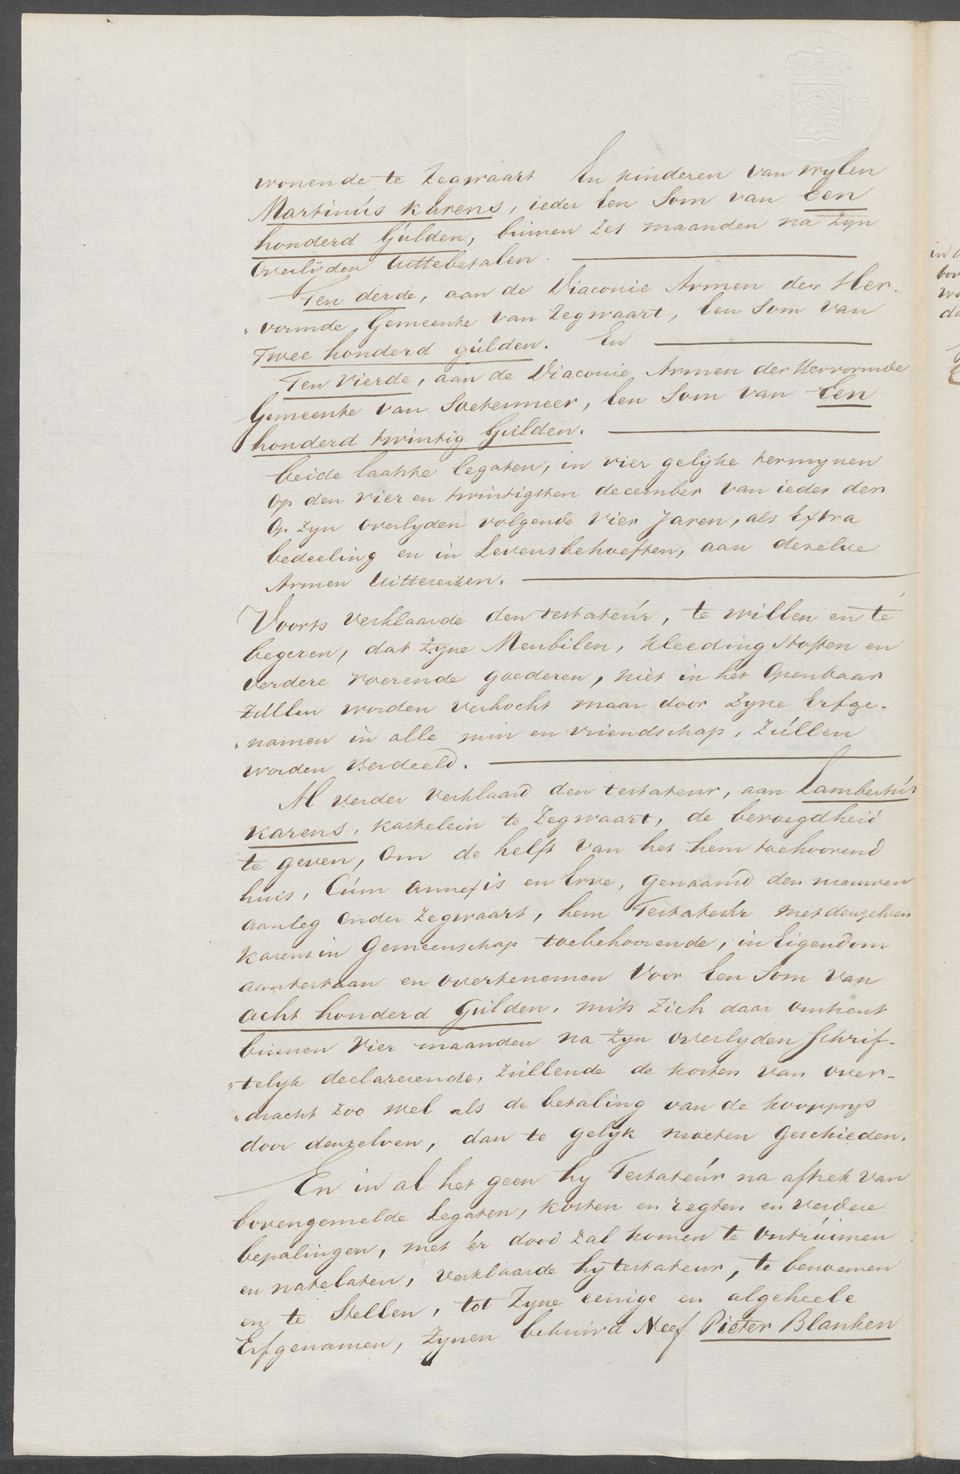 wonende te Zegwaart En kinderen van wylen
Martinús Karens, ieder Een Som van Een
honderd Gúlden, binnen Zes maanden na Zyn
Overlijden Uittebetalen.
Ten derde, aan de Diaconie Armen der Her-
"vormde Gemeente van Zegwaart, Een Som van
Twee honderd gúlden. En
Ten Vierde, aan de Diaconie Armen der Hervormde
Gemeente van Soetermeer, Een Som van Een
honderd twintig Gúlden.
beide laatste legaten, in vier gelijke termynen
Op den vier en twintigsten december van ieder der
Op Zyn overlyden volgende Vier Jaren, als Extra
bedeeling en in Levensbehoeften, aan dezelve
Armen Uittereiken.
Voorts verklaarde den testateúr, te willen en te
begeren, dat Zyne Meubilen, kleeding Stoffen en
verdere roerende goederen, niet in het Openbaar
Zúllen worden verkocht maar door Zyne Erfge-
"namen in alle min en vriendschap, Zúllen
worden verdeeld.
Al verder verklaard den testateur, aan Lambertús
Karens, kastelein te Zegwaart, de bevoegdheid
te geven, Om de helft van het hem toehoorend
huis, Cúm Annexis en Erve, genaamd den nieuwen
aanleg Onder Zegwaart, hem Testateúr met denzelven
Karens in Gemeenschap toebehoorende, in Eigendom
aantestaan en overtenemen Voor Een Som van
acht honderd Gúlden, mits Zich daar omtrent
binnen Vier maanden na Zyn Overlyden Schrif-
"telyk declarerende, Zullende de kosten van over-
"dracht Zoo wel als de betaling van de koopprys
door denzelven, dan te gelyk moeten Geschieden.
En in al het geen hy Testateúr na aftrek van
bovengemelde Legaten, kosten en regten en verdere
bepalingen, met 'er dood Zal komen te Ontrúimen
en natelaten, Verklaarde hy testateur, te benoemen
en te Stellen, tot Zyne eenige en algeheele
Erfgenamen, Zynen behuwd Neef Pieter Blanken